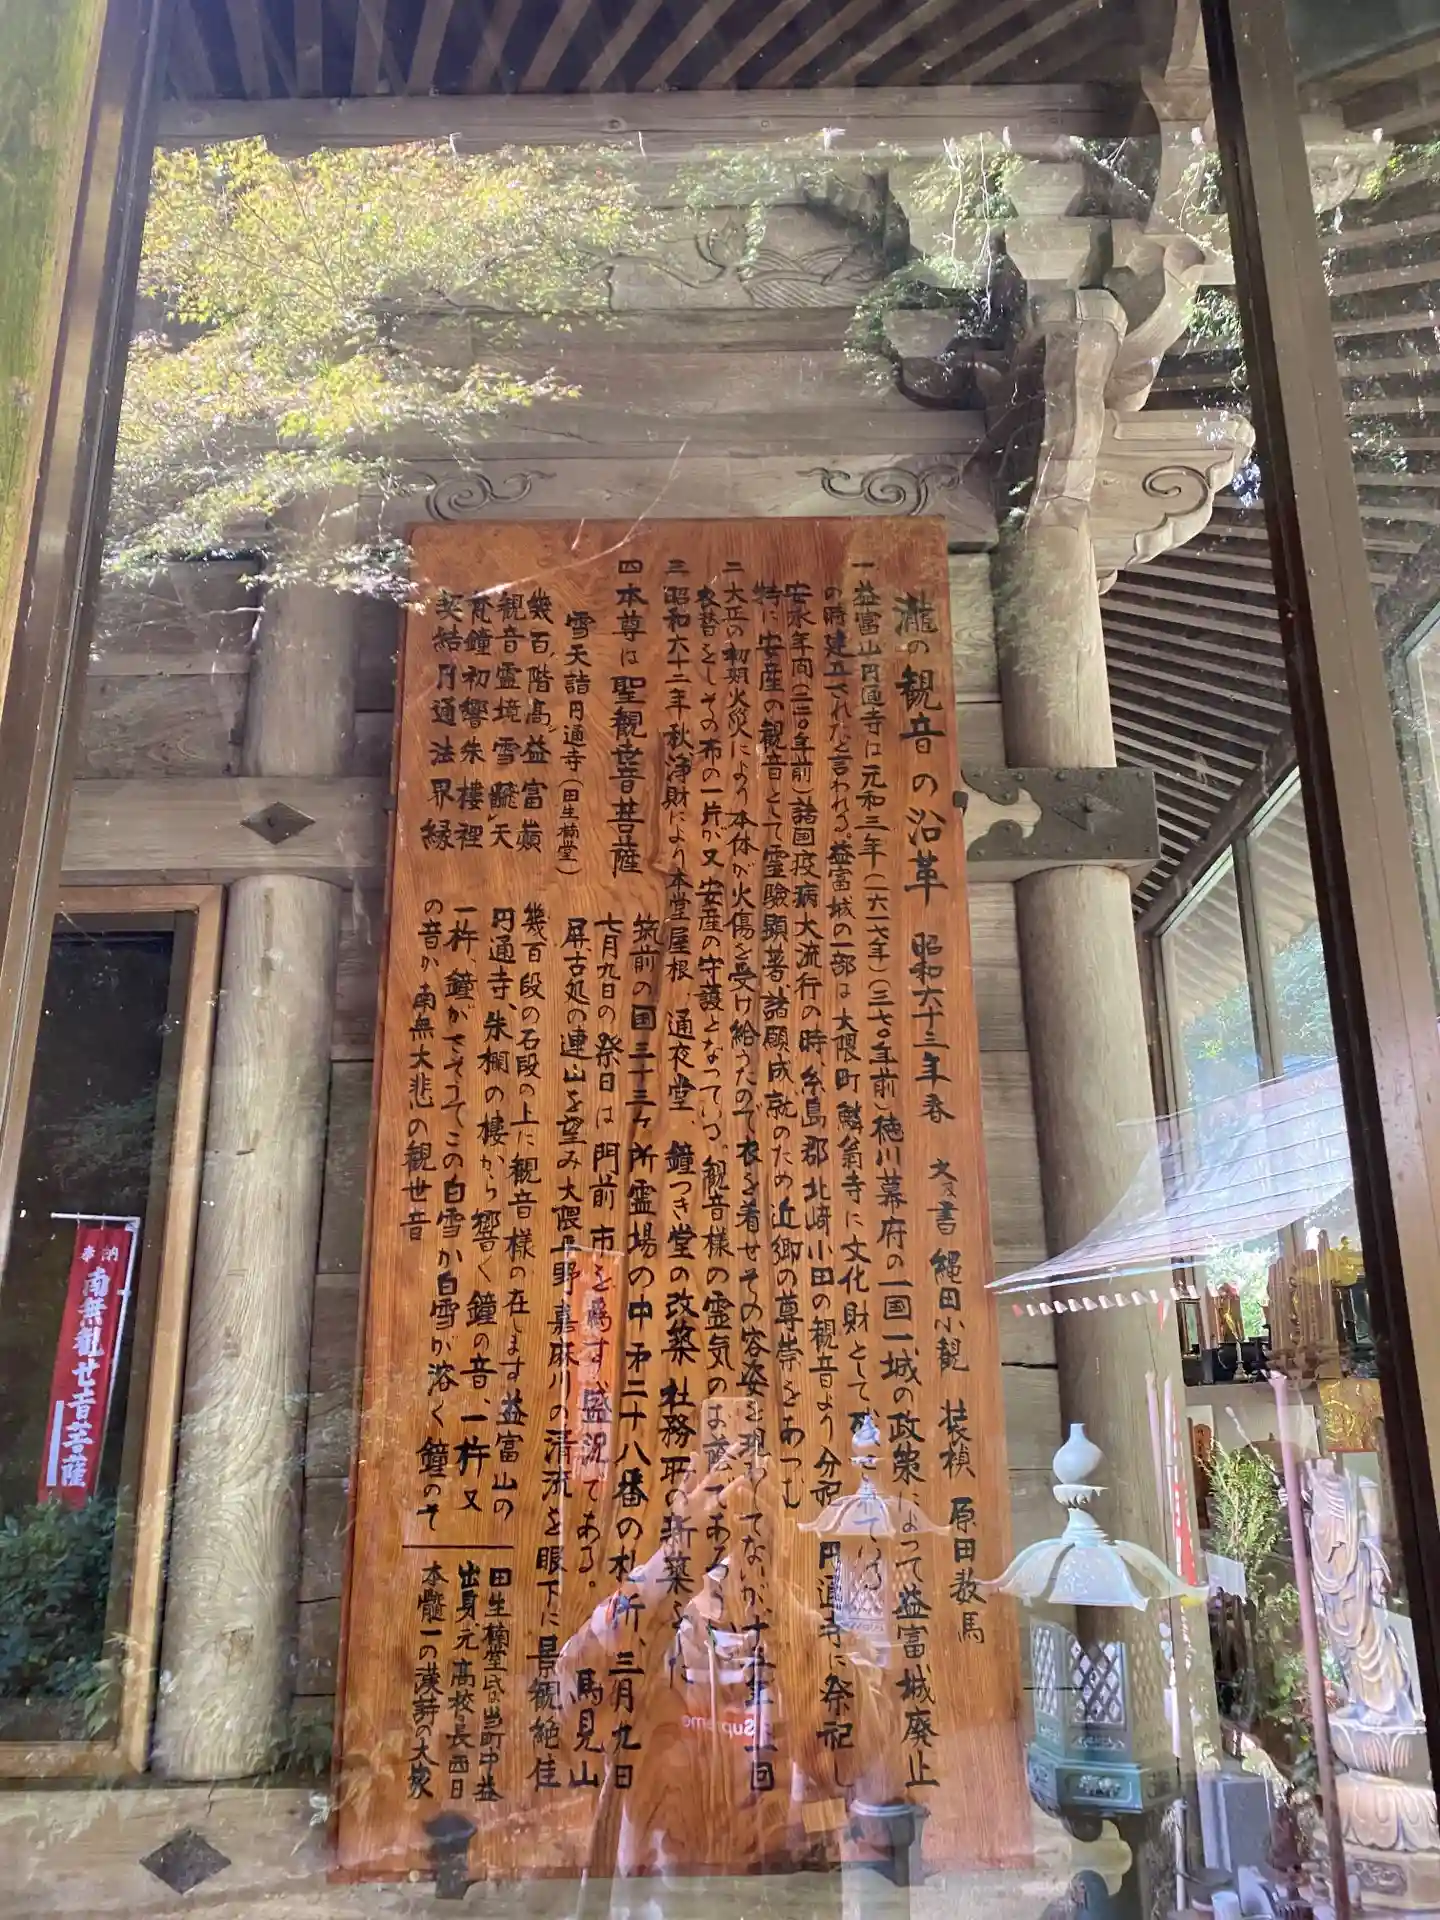 瀧の観音の沿革 昭和六十三年春 文及書 縄田小観 装槙 原田数馬
一 益富山円通寺は元和三年(一六一七年)(三七〇年前)徳川幕府の一国一城の政策によって益富城廃止
の時建立されたと言われる。益富城の一部は大隈町鱗翁寺に文化財として残されている
安永年間(二二〇年前)諸国疫病大流行の時、糸島郡北崎小田の観音より分祀 円通寺に祭祀し
特に安産の観音として霊験顕著、諸願成就のため近郷の尊崇をあつむ
二 大正の初期火災により本体が火傷を受け給うたので衣を着せその容姿を現わしてないが、十五年に一回
衣替をしその布の一片が又安産の守護となっている。観音様の霊気のお蔭であろう
三 昭和六十二年秋浄財により本堂屋根、通夜堂、鐘つき堂の改築 社務所の新築をした
四 本尊は聖観世音菩薩
筑前の国三十三ヶ所霊場の中 第二十八番の札所、三月九日
七月九日の祭日は門前市を為す盛況である。 馬見山
屏、古処の連山を望み大隈平野嘉麻川の清流を眼下に景観絶佳
雪天詣円通寺(田生楠堂)
幾百階高益富巓
観音霊境雪飜天
梵鐘初響朱樓裡
契結月通法界縁
幾百段の石段の上に観音様の在します益富山の
円通寺、朱欄の樓から響く鐘の音、一杵又
一杵、鐘がさそうてこの白雪か白雪が溶く鐘のそ
の音か 南無大悲の観世音
田生楠堂氏は当町中益
出身、元高校長西日
本髄一の漢詩の大家
奉納
南無観世音菩薩
Supreme